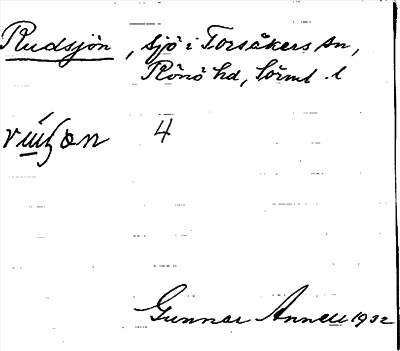 Rudsjön, sjö i Torsåkers sn,
Rönö hd, Sörml. l
4
Gunnar Annell 1932